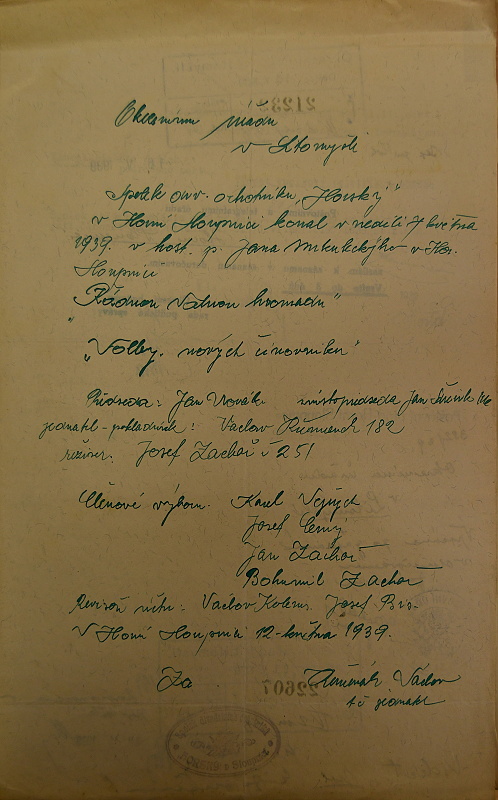 Okresnímu úřadu
v Litomyšli
Spolek div. ochotníků „Horský"
v Horní Sloupnici konal v neděli 7 května
1939. v host. p. Jana Mikuleckého v Hor.
Sloupnici
„Řádnou Valnou hromadu"
„Volby. nových činovníků"
Předseda: Jan Novák místopředseda Jan
jednatel-pokladník: Václav 182
režiser. Josef Zachař č 251
Členové výboru. Karel Vejrych
Josef Černý
Jan Zachař
Bohumil Zachař
Revisoři účtu: Václav Josef
V Horní Sloupnici 12. května 1939.
Za Václav
t.č jednatel